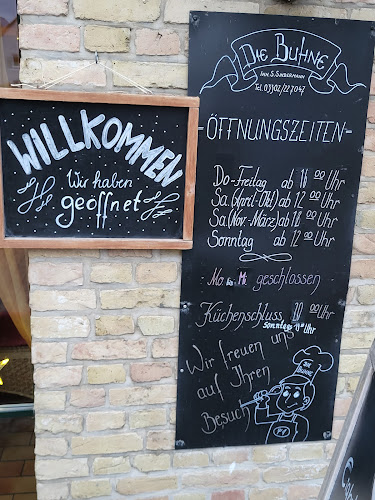 WILLKOMMEN
Wir haben
geöffnet
Die Bühne
Inh. S. Siedermann
Tel. 03302/227047
-ÖFFNUNGSZEITEN-
Do-Freitag ab 16 00 Uhr
Sa. (April-Okt) ab 12 00 Uhr
Sa. (Nov.-März) ab 16 00 Uhr
Sonntag ab 12 00 Uhr
Mo. bis Mi. geschlossen
Küchenschluss 00 Uhr
sonntags Uhr
Wir freuen uns
auf Ihren
Besuch
DIE
BÜHNE